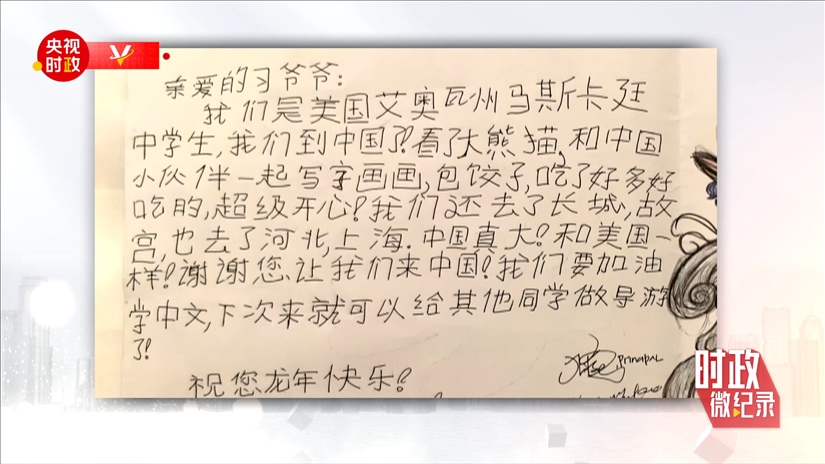 央视
时政
亲爱的习爷爷:
我们是美国艾奥瓦州马斯卡廷
中学生,我们到中国了!看了大熊猫,和中国
小伙伴一起写字画画,包饺子,吃了好多好
吃的,超级开心!我们还去了长城,故
宫,也去了河北,上海.中国真大!和美国一
样!谢谢您让我们来中国!我们要加油
学中文,下次来就可以给其他同学做导游
了!
principal
祝您龙年快乐!
时政
微纪录